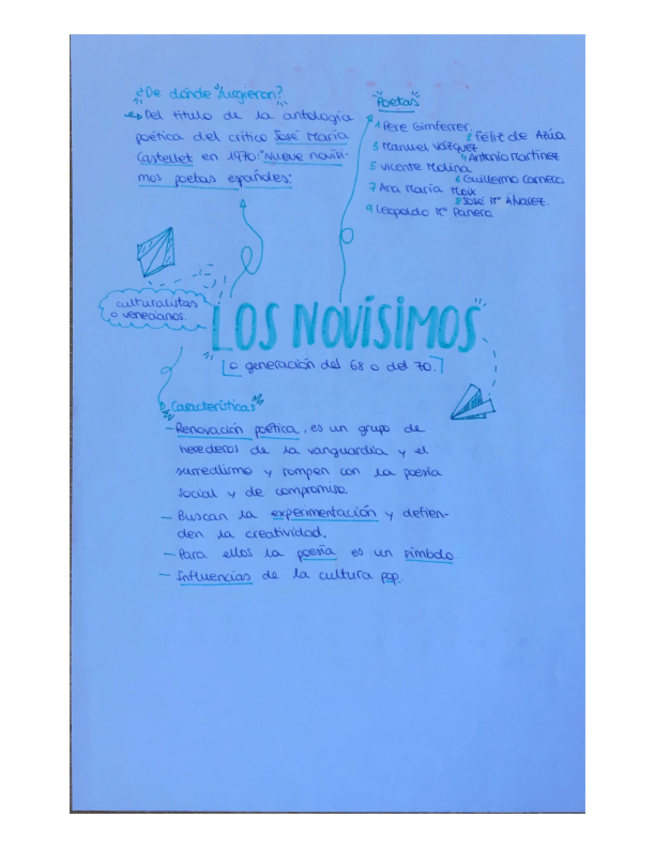 ¿De dónde surgieron?
Del título de la antología
poética del crítico José María
Castellet en 1970: "Nueve novísi-
mos poetas españoles:
Poetas
1 Pere Gimferrer.
2 Féliz de Azúa
3 Manuel Vázquez
4 Antonio Martínez
5 Vicente Molina
6 Guillermo Carnero
7 Ana María Moix
8 José Mª Álvarez.
9 Leopoldo Mª Panero
culturalistas
o venecianos.
LOS NOVÍSIMOS
[o generación del 68 o del 70.]
Características
- Renovación poética, es un grupo de
herederos de la vanguardia y el
surrealismo y rompen con la poesía
social y de compromiso
- Buscan la experimentación y defien-
den la creatividad.
- Para ellos la poesía es un símbolo
- Influencias de la cultura pop.